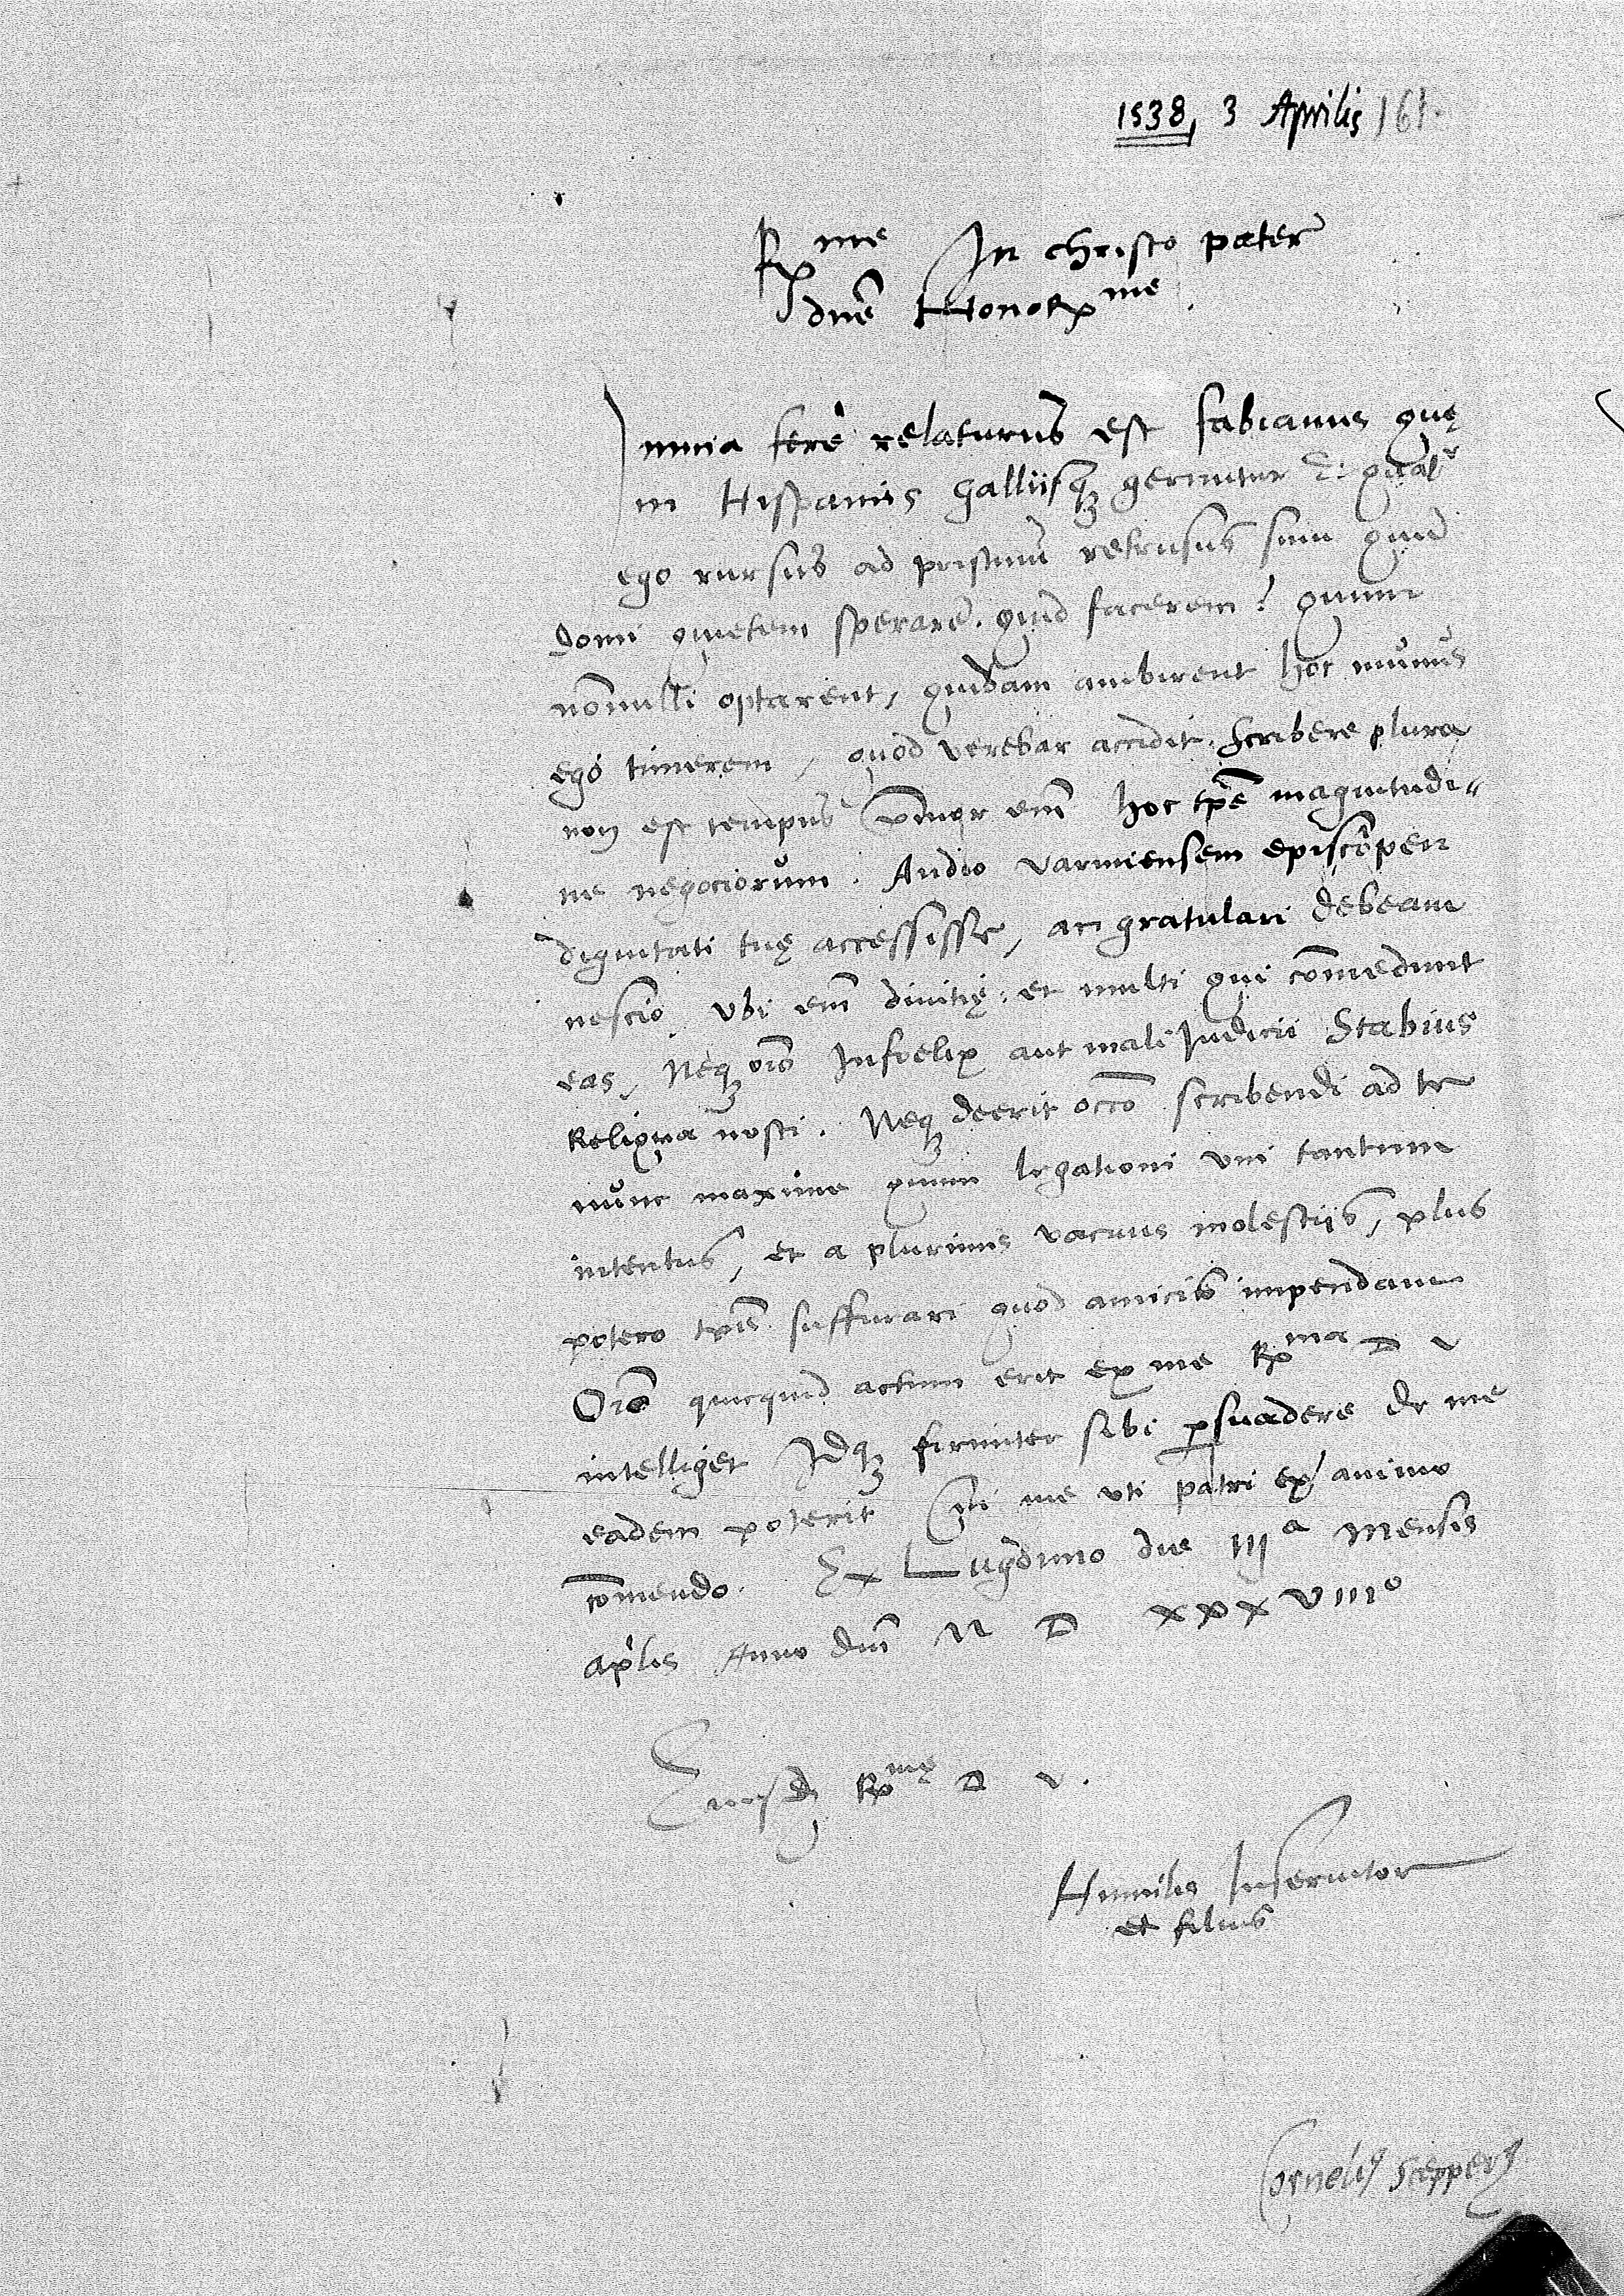 1538, 3 Aprilis 161.
Rxme In christo pater
dne Honorxme.
Omnia fere relaturus est fabianus quę
in Hispaniis Galliisq geruntur Et
ego rursus ad pristinu retrusus sum quu
domi quietem sperare. quid facerem? quum
nōnulli optarent, quidam ambirent hoc munus
ego timerem, quod verebar accidit. Scribere plura
non est tempus Vincor em hoc tpe magnitudi-
ne negociorum. Audio varmiensem episcopen
dignitati tuę accessisse, an gratulari debeam
nescio. Vbi em divitię: et multi qui comedunt
eas, Neq oīo Infoelix aut mali Iudicii Stabius
Reliqua nosti. Neq deerit occō scribendi ad te
nunc maxime quum legationi vni tantum
intentus, et a plurimis vacuus molestiis, plus
potero tpis suffurari quod amicis impendam
Oīo quicquid actum erit ex me Rxma D V
intelliget Idq firmiter sibi psuadere de me
eadem poterit Cui me vti patri ex animo
cōmendo. Ex Lugduno die IIIa Mensis
aplis Anno dni M D XXXVIIIo
Eiusd Rxmę D V.
Humilis Inservitor
et filius
Cornelius Scepperus